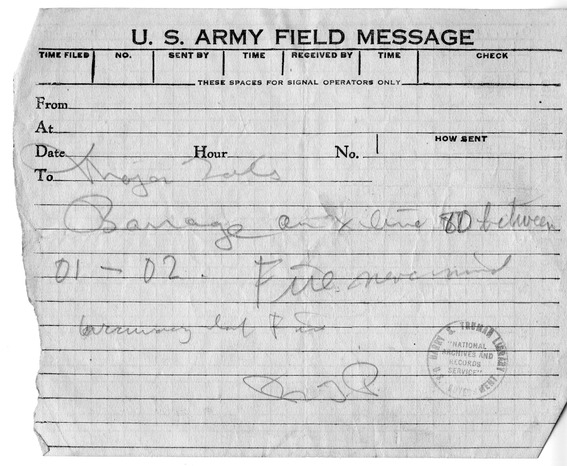 U. S. ARMY FIELD MESSAGE
TIME FILED NO. SENT BY TIME RECEIVED BY TIME CHECK
THESE SPACES FOR SIGNAL OPERATORS ONLY
From
At
HOW SENT
Date Hour No.
To Major Gates
Barrage on X line 80 between
01 - 02. Fire never mind
accuracy but Fire
HARRY S. TRUMAN LIBRARY
"NATIONAL
ARCHIVES AND
RECORDS
SERVICE"